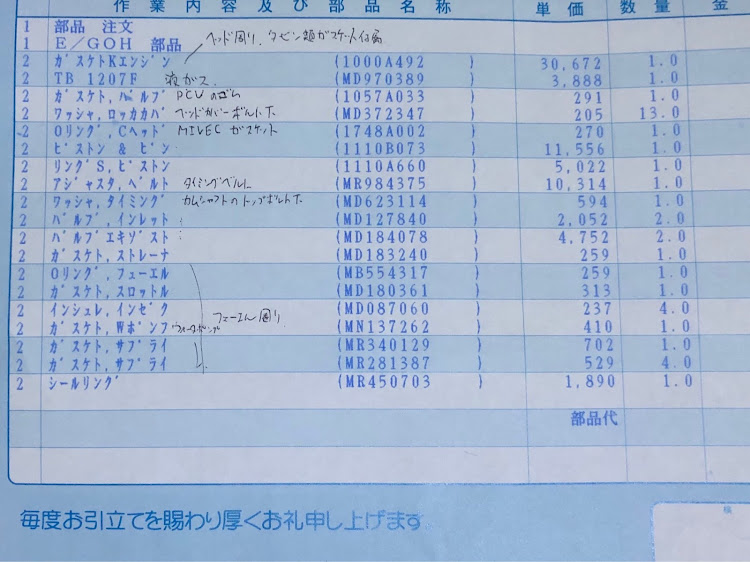 作業内容及び部品名称 単価 数量 金
1 部品 注文
1 E/GOH 部品 ヘッド周り、タービン廻ガスケット付属
2 ガスケトKエンジン (1000A492 ) 30,672 1.0
2 TB 1207F 液ガス (MD970389 ) 3,888 1.0
2 ガスケト,バルブ PCVのゴム (1057A033 ) 291 1.0
2 ワッシャ,ロッカカバ ヘッドカバーボルト下 (MD372347 ) 205 13.0
2 Oリング,Cヘッド MIVECガスケット (1748A002 ) 270 1.0
2 ピストン & ピン (1110B073 ) 11,556 1.0
2 リングS,ピストン (1110A660 ) 5,022 1.0
2 アジャスタ,ベルト タイミングベルト (MR984375 ) 10,314 1.0
2 ワッシャ,タイミング カムシャフトのトップボルト下 (MD623114 ) 594 1.0
2 バルブ,インレット (MD127840 ) 2,052 2.0
2 バルブエキゾスト (MD184078 ) 4,752 2.0
2 ガスケト,ストレーナ (MD183240 ) 259 1.0
2 Oリング,フューエル (MB554317 ) 259 1.0
2 ガスケト,スロットル (MD180361 ) 313 1.0
2 インシュレ,インゼク フューエル周り (MD087060 ) 237 4.0
2 ガスケト,Wポンプ ウォーターポンプ (MN137262 ) 410 1.0
2 ガスケト,サプライ (MR340129 ) 702 1.0
2 ガスケト,サプライ (MR281387 ) 529 4.0
2 シールリング (MR450703 ) 1,890 1.0
部品代
毎度お引立てを賜わり厚くお礼申し上げます